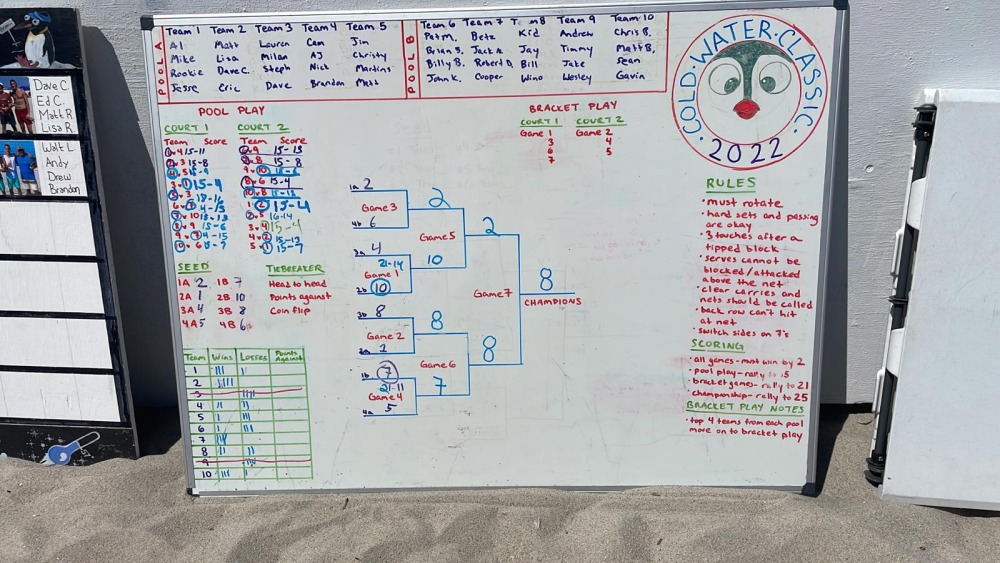 Dave C.
Ed C.
Matt R
Lisa R.
Walt L
Andy
Drew
Brandon
POOL A
Team 1 Team 2 Team 3 Team 4 Team 5
Al Matt Lauren Cam Jim
Mike Lisa Milan AJ Christy
Rookie Dave C. Steph Nick Martins
Jesse Eric Dave Brandon
POOL B
Team 6 Team 7 Team 9 Team 10
Pat M. Betz Kid Andrew Chris B.
Brian S. Jack A. Jay Timmy Matt B.
Billy B. Robert D. Bill Jake Sean
John K. Cooper Wino Wesley Gavin
COLD·WATER·CLASSIC·
2022
POOL PLAY
COURT 1
Team Score
1 v 4 15-11
2 v 3 15-8
4 v 5 15-9
COURT 2
Team Score
15-13
15-8
8 v 6 15-4
2 v 5 16-14
3 v 4 15-4
SEED
1A 2 1B 7
2A 1 2B 10
3A 4 3B 8
4A 5 4B 6
TIEBREAKER
Head to head
Points against
Coin flip
Team Wins Losses Points Against
1
2
3
4
5
6
7
8
9
10
BRACKET PLAY
COURT 1 COURT 2
Game 1 Game 2
3 4
6 5
7
1A 2
Game 3
4B 6
2
3A 4
21-14
Game 1
2B 10
10
Game 5
2
3B 8
Game 2
2A 1
8
1B 7
21-11
Game 4
4A 5
7
Game 6
8
Game 7
8
CHAMPIONS
RULES
• must rotate
• hand sets and passing
are okay
• 3 touches after a
tipped block
• serves cannot be
blocked/attacked
above the net
• clear carries and
nets should be called
• back row can't hit
at net
• switch sides on 7's
SCORING
• all games- must win by 2
• pool play- rally to 15
• bracket games- rally to 21
• championship- rally to 25
BRACKET PLAY NOTES
• top 4 teams from each pool
move on to bracket play